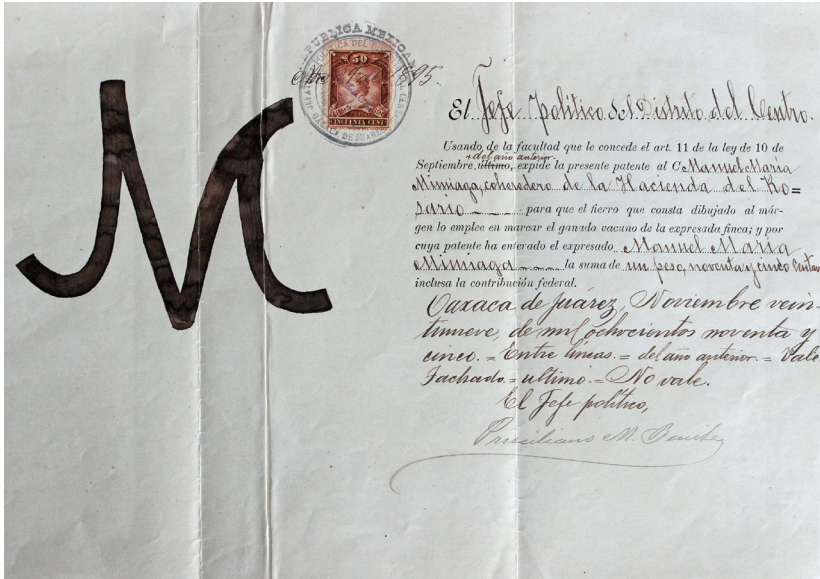 M
REPUBLICA MEXICANA
50
CINCUENTA CENT
1895.
El Jefe Politico del Distrito del Centro.
Usando de la facultad que le concede el art. 11 de la ley de 10 de
del año anterior
Septiembre último, expide la presente patente al C Manuel María
Mimiaga, coheredero de la Hacienda del Ro=
sario para que el fierro que consta dibujado al már-
gen lo emplee en marcar el ganado vacuno de la expresada finca; y por
cuya patente ha enterado el expresado Manuel María
Mimiaga la suma de un peso, noventa y cinco centav
inclusa la contribución federal.
Oaxaca de Juárez, Noviembre vein-
tinueve, de mil ochocientos noventa y
cinco.=Entre lineas.=del año anterior.=Vale
Tachado.=ultimo.=No vale.
El Jefe político,
M. Benitez